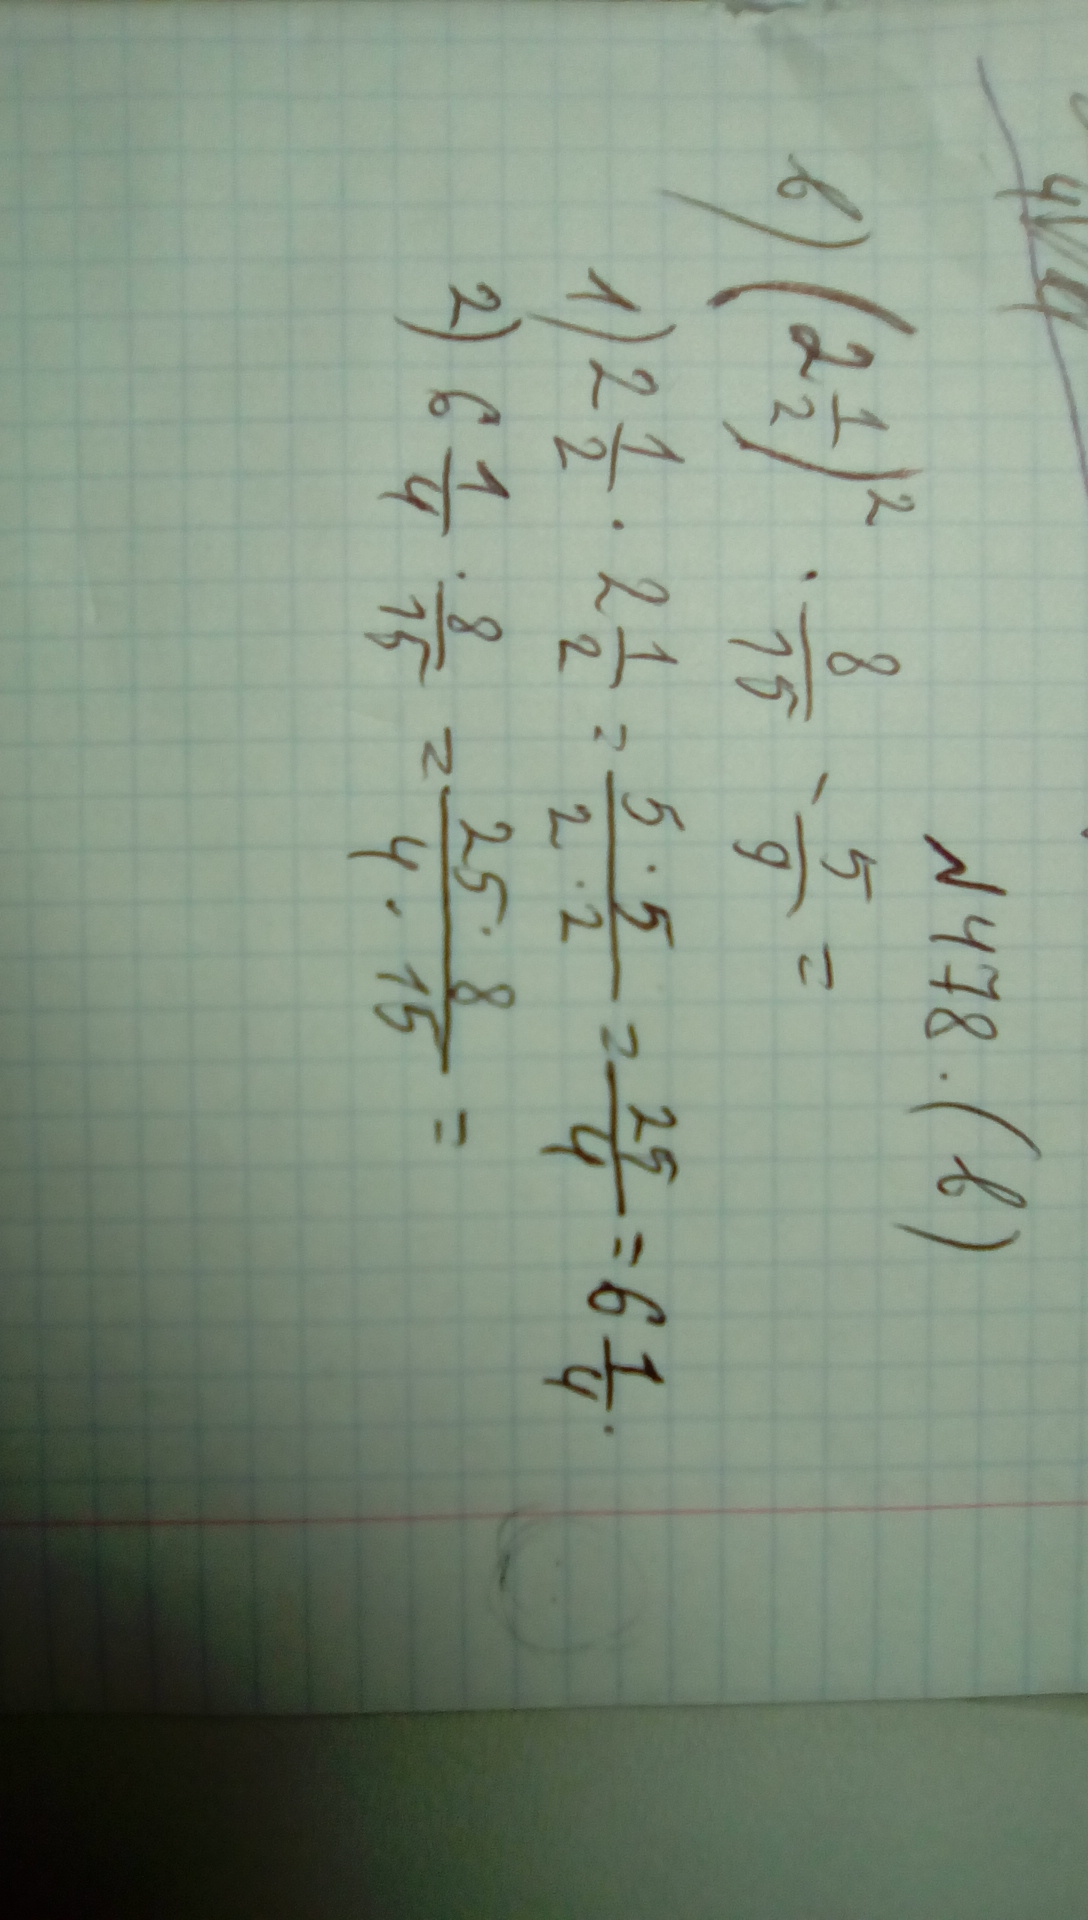 N 478. (в)
в) (2 1/2)² · 8/15 - 5/9 =
1) 2 1/2 · 2 1/2 = 5·5/2·2 = 25/4 = 6 1/4.
2) 6 1/4 · 8/15 = 25·8/4·15 =